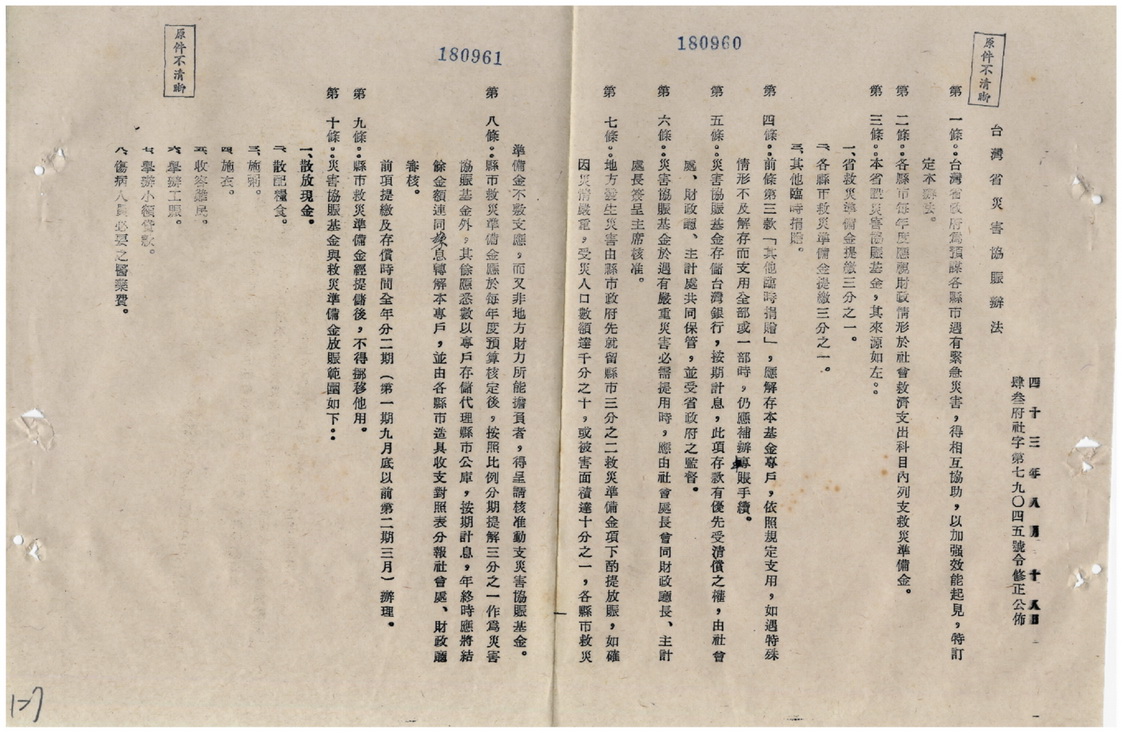 180960
原件不清晰
台灣省災害協賑辦法
四十三年八月十八日
肆叁府社字第七九〇四五號令修正公佈
第一條:台灣省政府為預謀各縣市遇有緊急災害,得相互協助,以加强效能起見,特訂
定本辦法。
第二條:各縣市每年度應視財政情形於社會救濟支出科目內列支救災準備金。
第三條:本省設災害協賑基金,其來源如左:
一、省救災準備金提繳三分之一。
二、各縣市救災準備金提繳三分之一。
三、其他臨時捐贈。
第四條:前條第三款「其他臨時捐贈」,應解存本基金專戶,依照規定支用,如遇特殊
情形不及解存而支用全部或一部時,仍應補辦專賬手續。
第五條:災害協賑基金存儲台灣銀行,按期計息,此項存款有優先受清償之權,由社會
處、財政廳、主計處共同保管,並受省政府之監督。
第六條:災害協賑基金於遇有嚴重災害必需提用時,應由社會處長會同財政廳長、主計
處長簽呈主席核准。
第七條:地方發生災害由縣市政府先就留縣市三分之二救災準備金項下酌提放賑,如確
因災情嚴重,受災人口數額達千分之十,或被害面積達十分之一,各縣市救災
180961
原件不清晰
準備金不敷支應,而又非地方財力所能擔負者,得呈請核准動支災害協賑基金。
第八條:縣市救災準備金應於每年度預算核定後,按照比例分期提解三分之一作為災害
協賑基金外,其餘應悉數以專戶存儲代理縣市公庫,按期計息,年終時應將結
餘金額連同息轉解本專戶,並由各縣市造具收支對照表分報社會處、財政廳
審核。
前項提繳及存儲時間全年分二期(第一期九月底以前第二期三月)辦理。
第九條:縣市救災準備金經提儲後,不得挪移他用。
第十條:災害協賑基金與救災準備金放賑範圍如下:
一、散放現金。
二、散配糧食。
三、施粥。
四、施衣。
五、收容難民。
六、舉辦工賑。
七、舉辦小額貸款。
八、傷病人員必要之醫藥費。